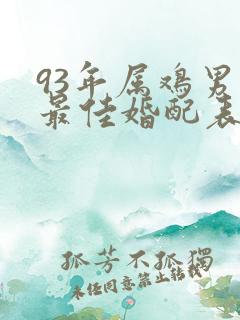 93年属鸡男
最佳婚配表
孤芳不孤獨
未经同意禁止转载